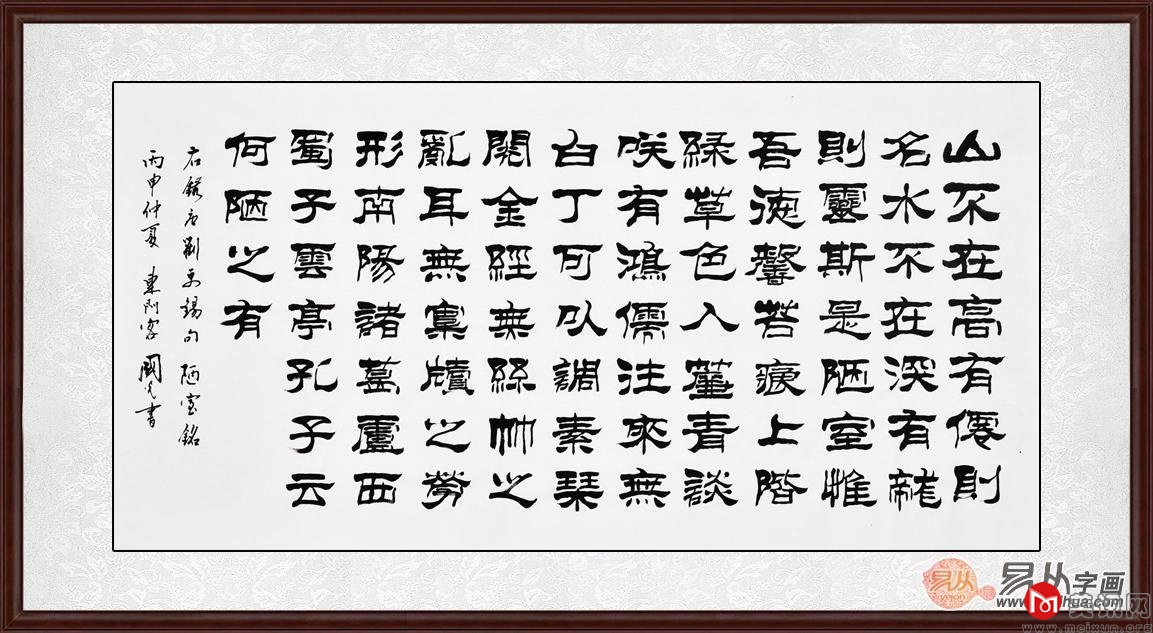 山不在高有僊則
名水不在深有龍
則靈斯是陋室惟
吾德馨苔痕上階
緑草色入簾青談
咲有鴻儒往來無
白丁可以調素琴
閱金經無絲竹之
亂耳無案牘之勞
形南陽諸葛廬西
蜀子雲亭孔子云
何陋之有
右錄唐劉禹錫句 陋室銘
丙申仲夏 東門客 國 書
易从
易从字画
www.
hua.com
www.meixun.org